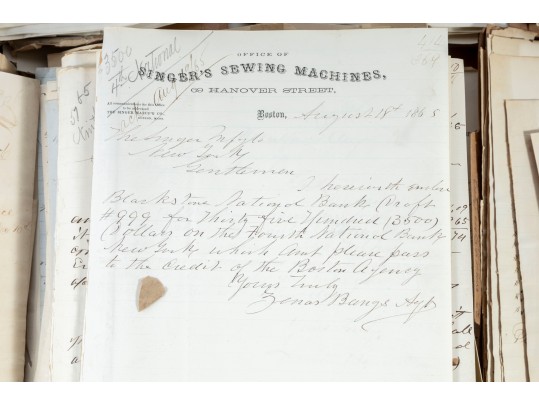 3500
4th National
Aug 1865
OFFICE OF
SINGER'S SEWING MACHINES,
69 HANOVER STREET,
All communications for this Office
to be addressed
THE SINGER MANUF'G CO.
BOSTON, MASS.
Boston, August 18th 1865
The Singer Mfg Co
New York
Gentlemen
I herewith enclose
Blackstone National Bank Draft
#999 for Thirty five Hundred (3500)
Dollars on the Fourth National Bank
New York, which Amt please pass
to the credit of the Boston Agency
Yours Truly
Zenas Bangs Agt
65